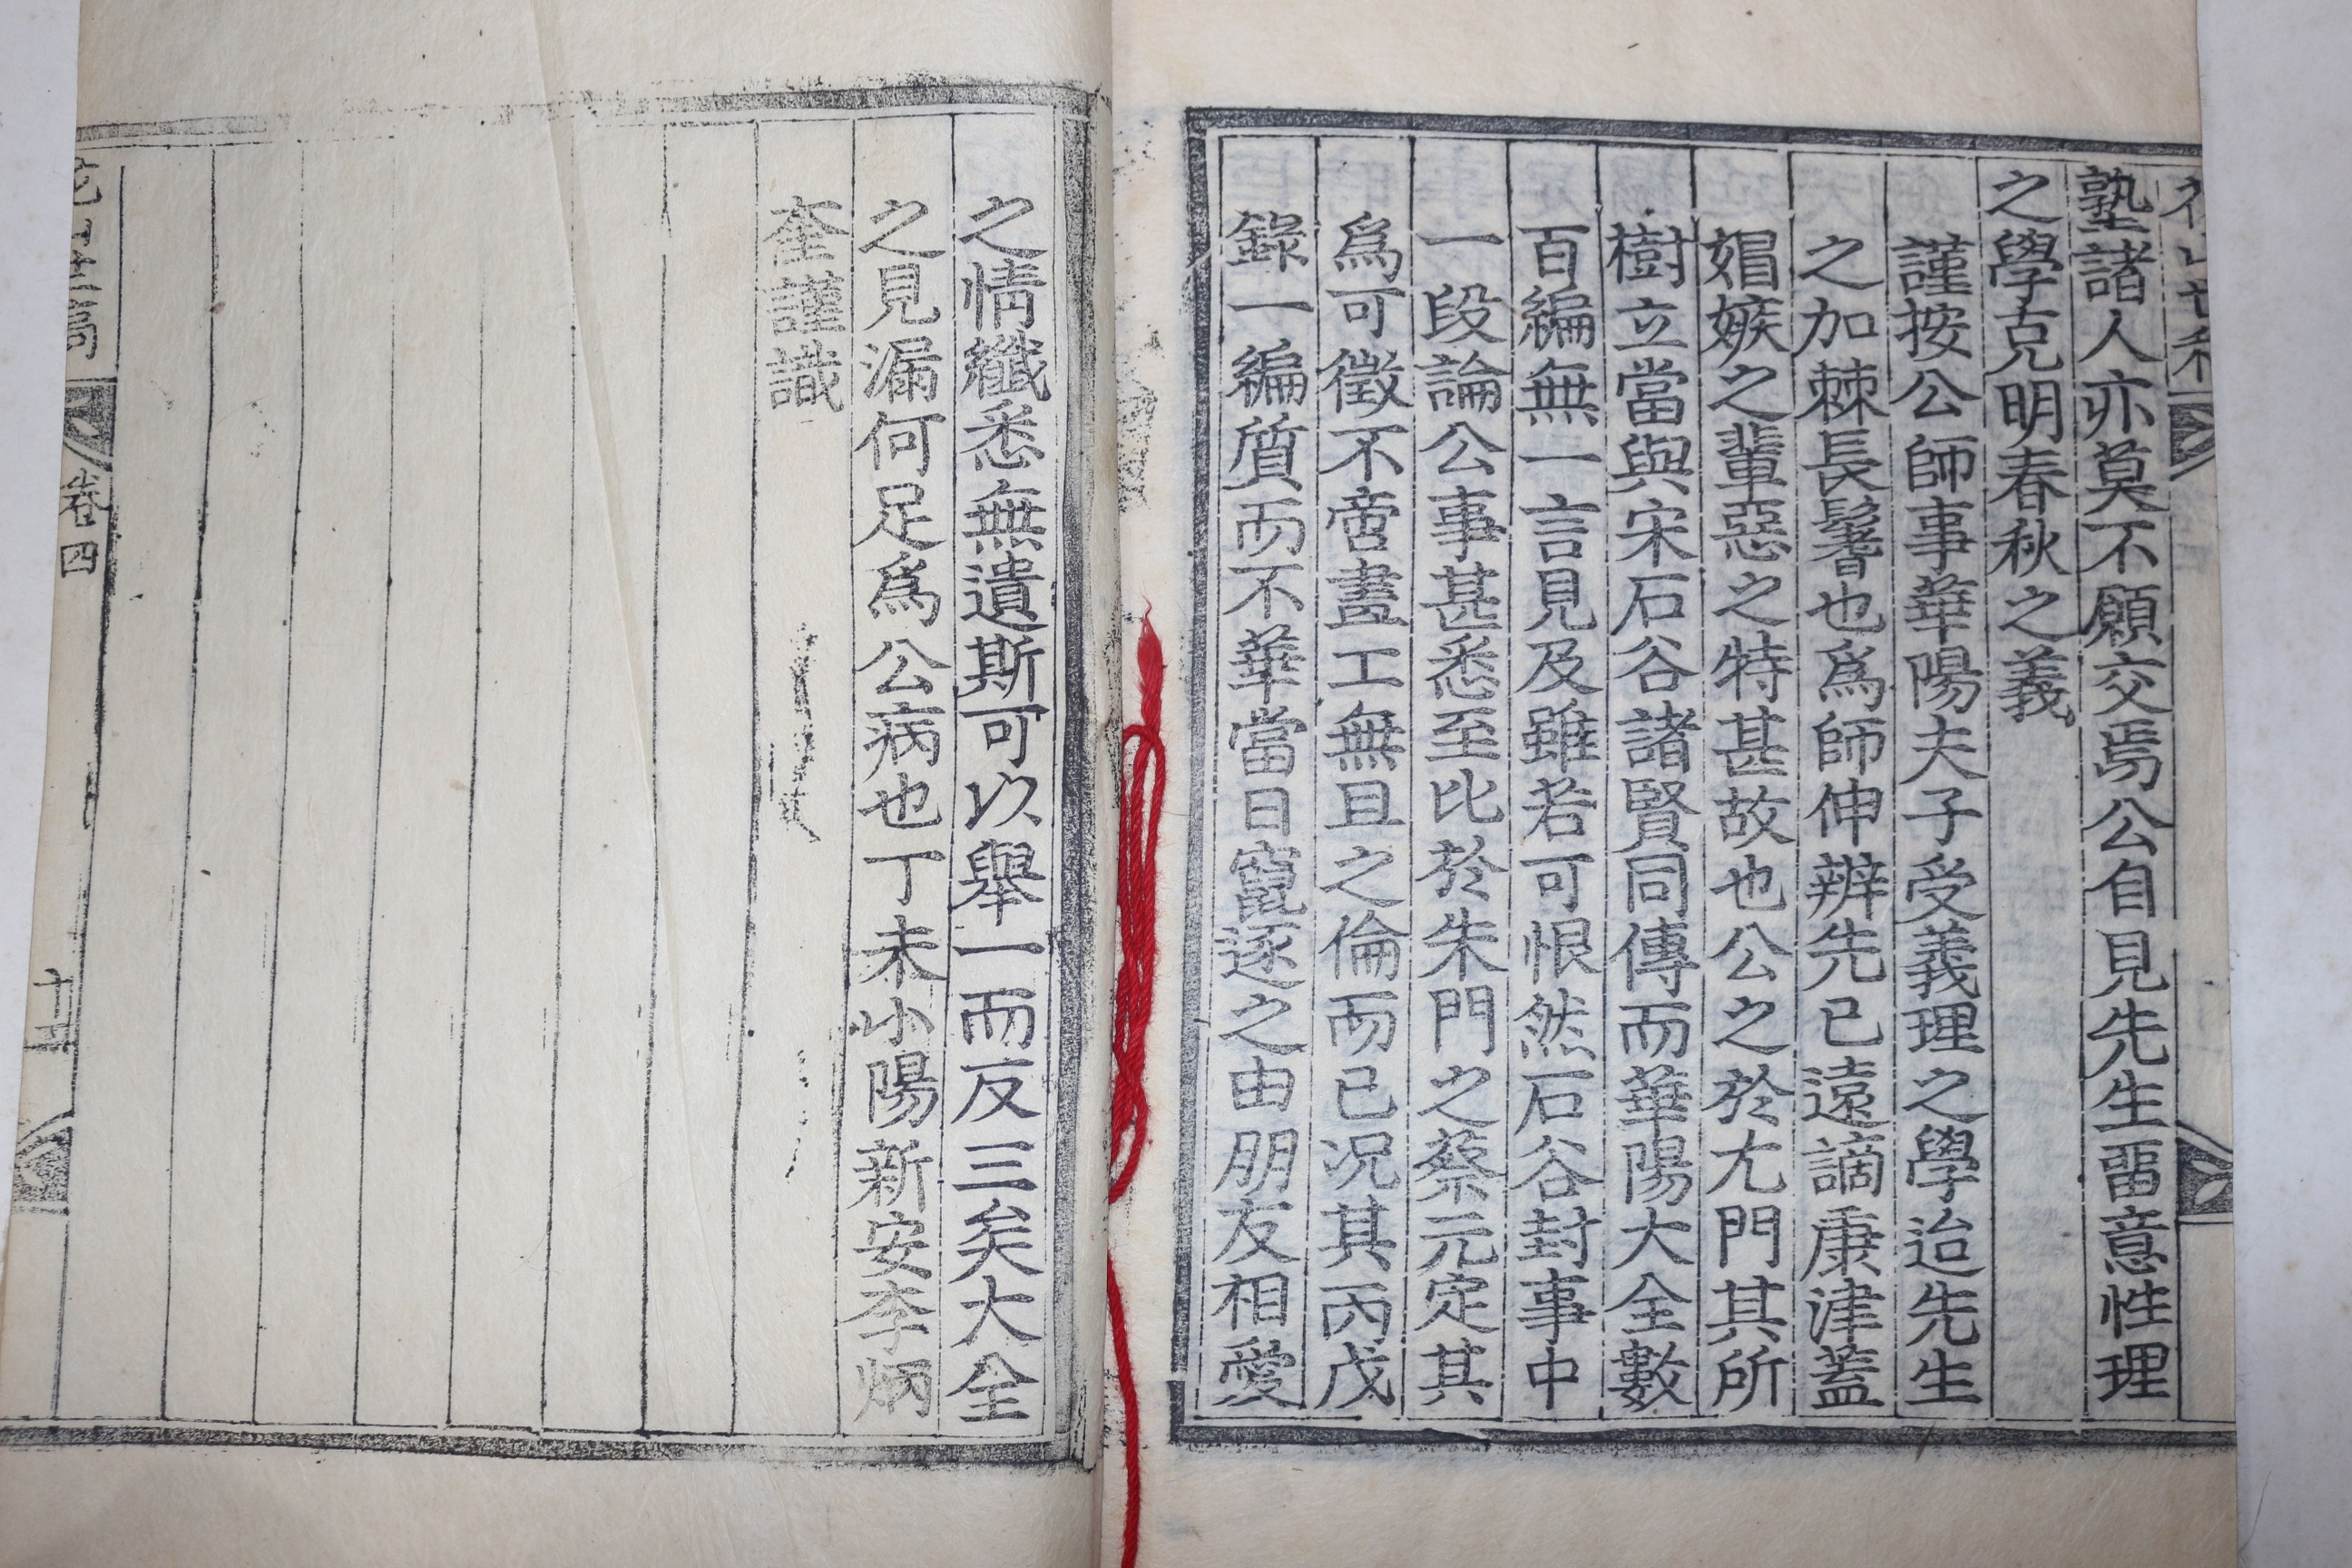 塾諸人亦莫不願交焉公自見先生畱意性理
之學克明春秋之義
謹按公師事華陽夫子受義理之學迨先生
之加棘長鬐也爲師伸辨先已遠謫康津蓋
媢嫉之輩惡之特甚故也公之於尤門其所
樹立當與宋石谷諸賢同傳而華陽大全數
百編無一言見及雖若可恨然石谷封事中
一段論公事甚悉至比於朱門之蔡元定其
爲可徵不啻畫工無且之倫而已况其丙戊
錄一編質而不華當日竄逐之由朋友相愛
之情纖悉無遺斯可以擧一而反三矣大全
之見漏何足爲公病也丁未小陽新安李炳
奎謹識
卷四